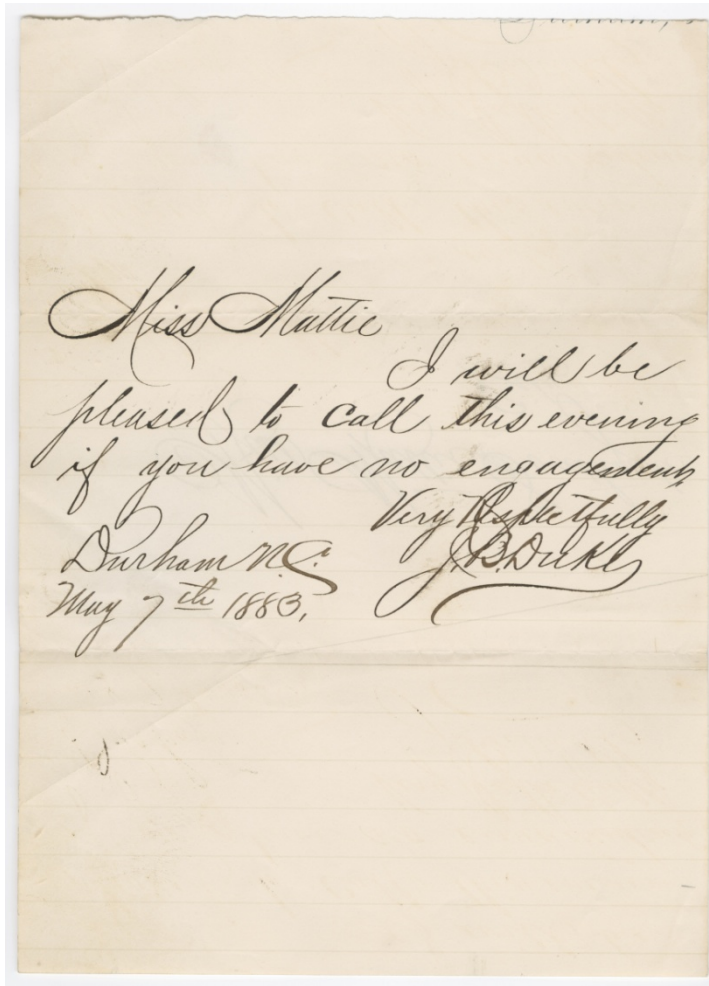 Durham,
Miss Mattie
I will be
pleased to call this evening
if you have no engagement
Very Respectfully
J. B. Duke
Durham N.C.
May 7th 1883.